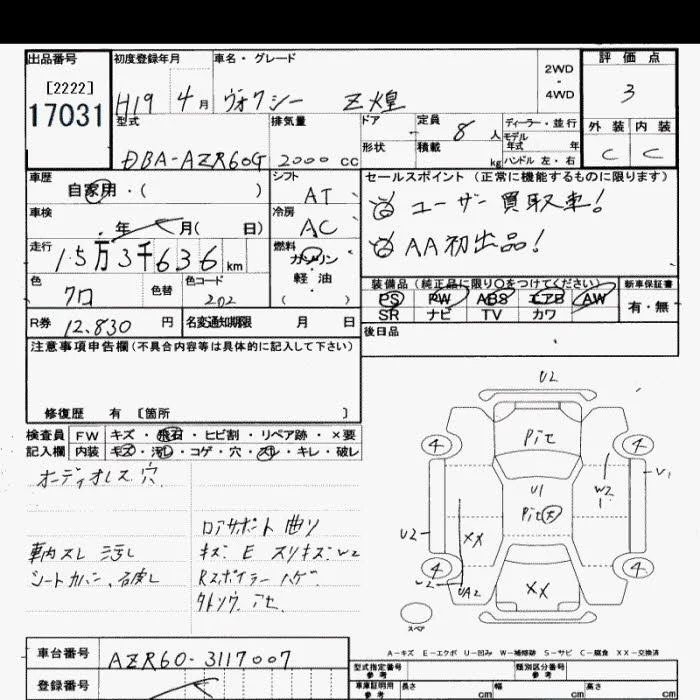 出品番号 初度登録年月 車名・グレード 2WD・4WD 評価点
[2222]
17031
H19 4月 ヴォクシー Z煌 3
型式 排気量 ドア 定員 8人 ディーラー・並行 外装 内装
モデル年式 年
形状 積載 kg ハンドル 左・右
DBA-AZR60G 2000 CC C C
車歴 自家用・( ) シフト AT セールスポイント (正常に機能するものに限ります)
ユーザー買取車!
車検 年 月( 日) 冷房 AC
AA初出品!
走行 15万3千636 km 燃料 ガソリン・軽油 ( )
色 クロ 色替 色コード 202
装備品 (純正品に限り○をつけてください) 新車保証書
PS PW ABS エアB AW 有・無
SR ナビ TV カワ
R券 12,830 円 名変通知期限 月 日 後日品
注意事項申告欄(不具合内容等は具体的に記入して下さい)
修復歴 有 [箇所 ]
検査員 FW キズ・飛石・ヒビ割・リペア跡・×要
記入欄 内装 キズ・汚レ・コゲ・穴・スレ・キレ・破レ
オーディオレス 穴
コアサポート 曲り
車内スレ 汚レ キズ E スリキズ W2
シートカバー
Rスポイラー ハゲ
U2
4 Pit 4
U1 W2 V1
Pit 大
U2 XX
4 XX 4
UA2
スペア
A-キズ E-エクボ U-凹み W-補修跡 S-サビ C-腐食 XX-交換済
車台番号 AZR60-3117007
型式指定番号 参考 類別区分番号 参考
登録番号
車庫証明用 参考 長さ cm 幅 cm 高さ cm